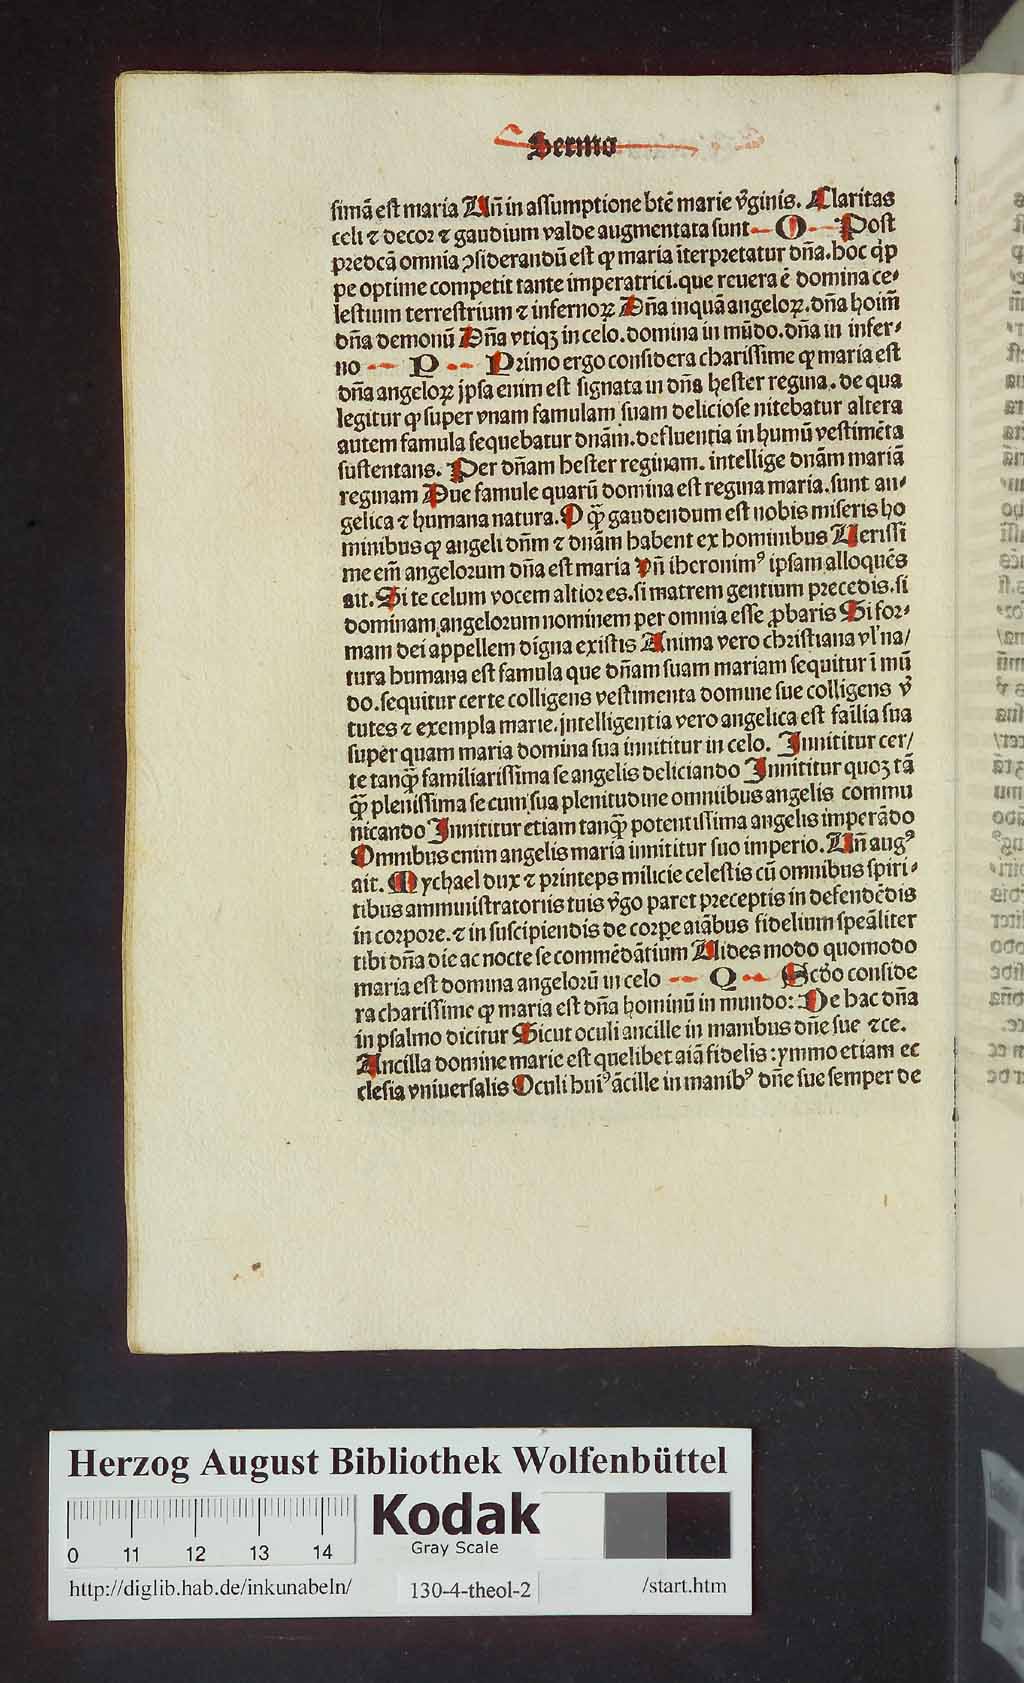 Sermo
simā est maria Vn̄ in assumptione btē marie v̄ginis. Claritas
celi ⁊ decor ⁊ gaudium valde augmentata sunt O Post
predcā omnia ꝯsiderandū est ꝙ maria īterpretatur dn̄a. hoc q̇p
pe optime competit tante imperatrici. que reuera ē domina ce⸗
lestium terrestrium ⁊ infernoꝝ Dn̄a inquā angeloꝝ. dn̄a hoim̄
dn̄a demonū Dn̄a vtiqꝫ in celo. domina in mūdo. dn̄a in infer⸗
no P Primo ergo considera charissime ꝙ maria est
dn̄a angeloꝝ jpsa enim est signata in dn̄a hester regina. de qua
legitur ꝙ super vnam famulam suam deliciose nitebatur altera
autem famula sequebatur dnām. defluentia in humū vestimēta
sustentans. Per dn̄am hester reginam. intellige dnām mariā
reginam Due famule quarū domina est regina maria. sunt an⸗
gelica ⁊ humana natura. O qꝫ̄ gaudendum est nobis miseris ho
minibus ꝙ angeli dn̄m ⁊ dnām habent ex hominibus Verissi
me em̄ angelorum dn̄a est maria vn̄ iheronimꝰ ipsam alloquēs
ait. Si te celum vocem altior es. si matrem gentium precedis. si
dominam angelorum nominem per omnia esse ꝓbaris Si for⸗
mam dei appellem digna existis Anima vero christiana vl' na/
tura humana est famula que dn̄am suam mariam sequitur ī mū
do. sequitur certe colligens vestimenta domine sue colligens v̄
tutes ⁊ exempla marie. jntelligentia vero angelica est fal̄ia sua
super quam maria domina sua innititur in celo. Innititur cer/
te tanqꝫ̄ familiarissima se angelis deliciando Innititur quoꝫ tā
qꝫ̄ plenissima se cum sua plenitudine omnibus angelis commu
nicando Innititur etiam tanqꝫ̄ potentissima angelis imperādo
Omnibus enim angelis maria innititur suo imperio. Vn̄ augꝰ
ait. Mychael dux ⁊ princeps milicie celestis cū omnibus spiri⸗
tibus amministratoriis tuis v̄go paret preceptis in defendēdis
in corpore. ⁊ in suscipiendis de corꝑe aīabus fidelium speāliter
tibi dn̄a die ac nocte se commēdātium Vides modo quomodo
maria est domina angelorū in celo Q Scd̄o conside
ra charissime ꝙ maria est dn̄a hominū in mundo: De hac dn̄a
in psalmo dicitur Sicut oculi ancille in manibus dn̄e sue ⁊ce.
Ancilla domine marie est quelibet aiā fidelis : ymmo etiam ec
clesia vniuersalis Oculi huiꝰ ācille in manibꝰ dn̄e sue semper de
Herzog August Bibliothek Wolfenbüttel
Kodak
Gray Scale
0 11 12 13 14
http://diglib.hab.de/inkunabeln/ 130-4-theol-2 /start.htm